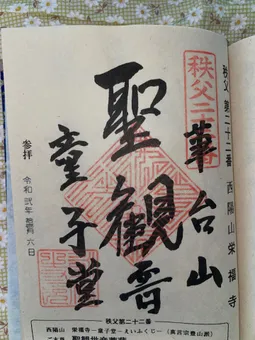 秩父二十二番
秩父第二十二番 西陽山栄福寺
華台山
聖観音
童子堂
参拝 令和弐年 月六日
秩父第二十二番
西陽山 栄福寺―童子堂―えいふくじ―(真言宗豊山派)
聖観世音菩薩